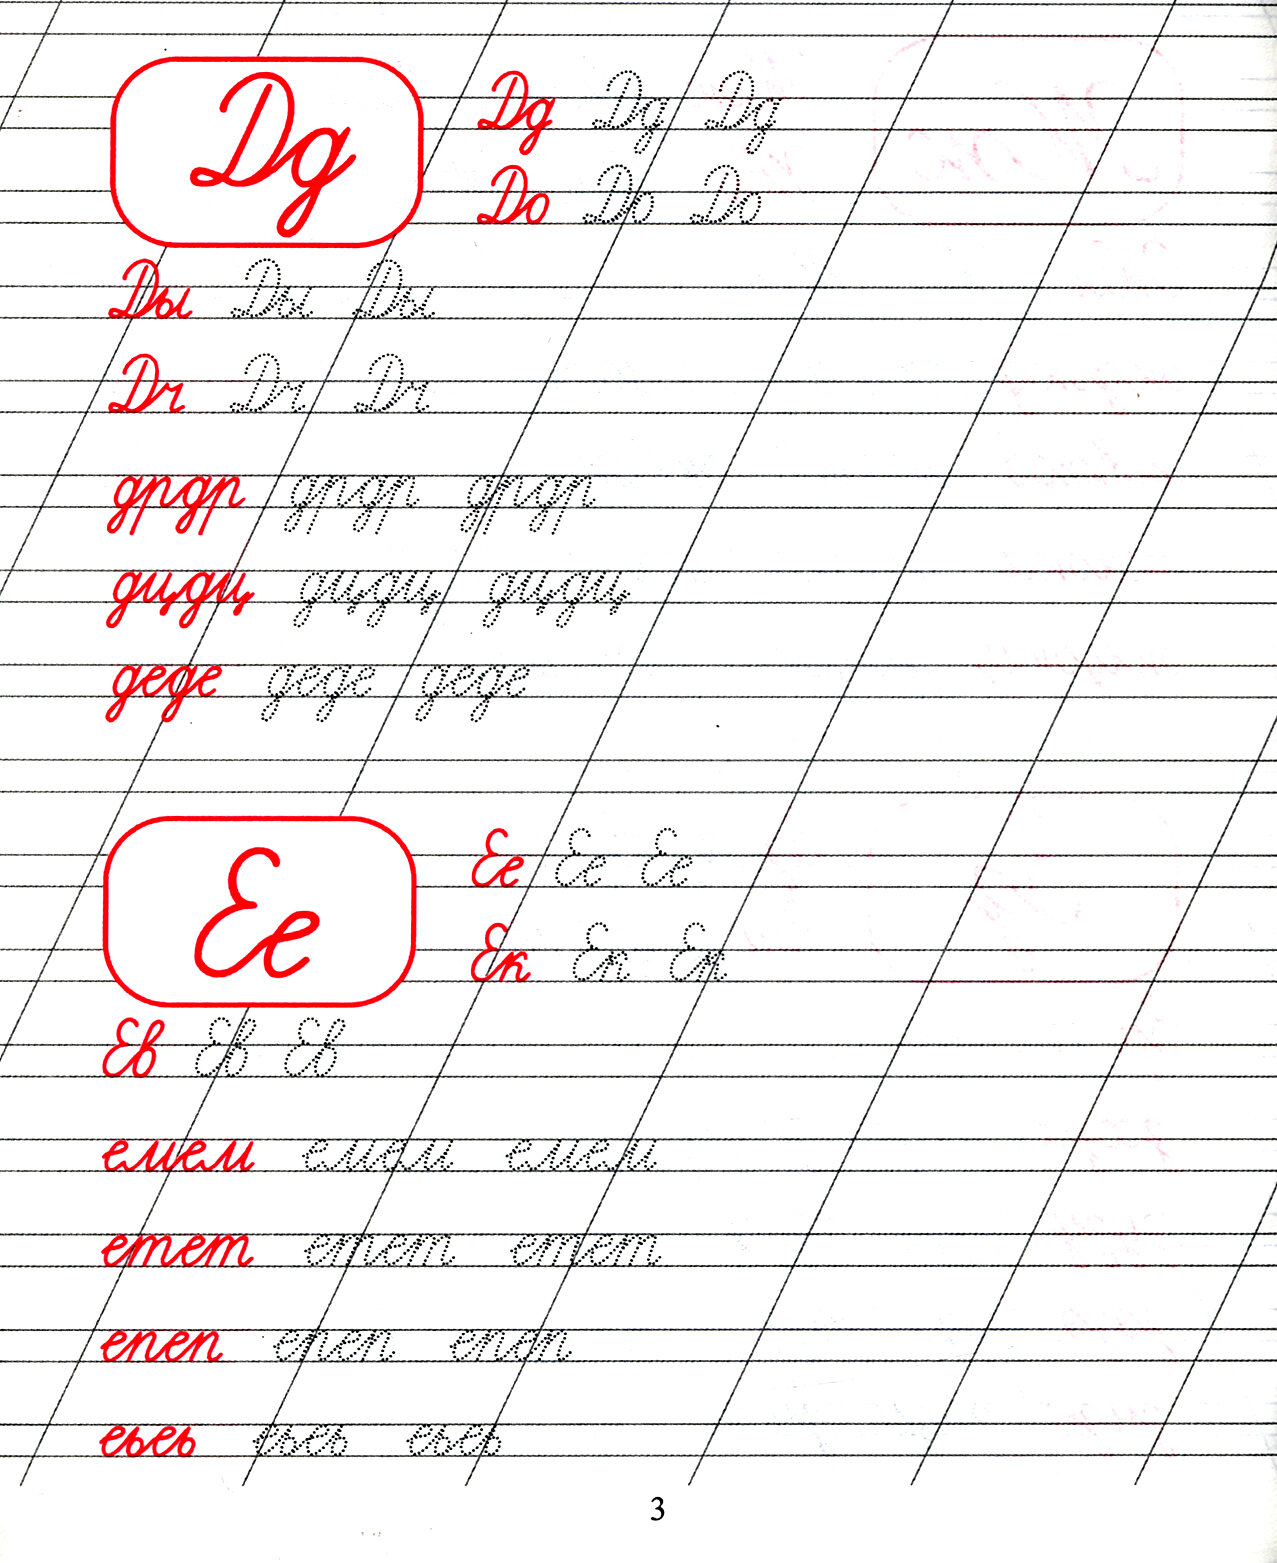 Дд
Дд Дд Дд
До До До
Ды Ды Ды
Дг Дг Дг
дрдр дрдр дрдр
дцдц дцдц дцдц
деде деде деде
Ее
Ее Ее Ее
Ек Ек Ек
Ев Ев Ев
емем емем емем
етет етет етет
епеп епеп епеп
еьеь еьеь еьеь
3